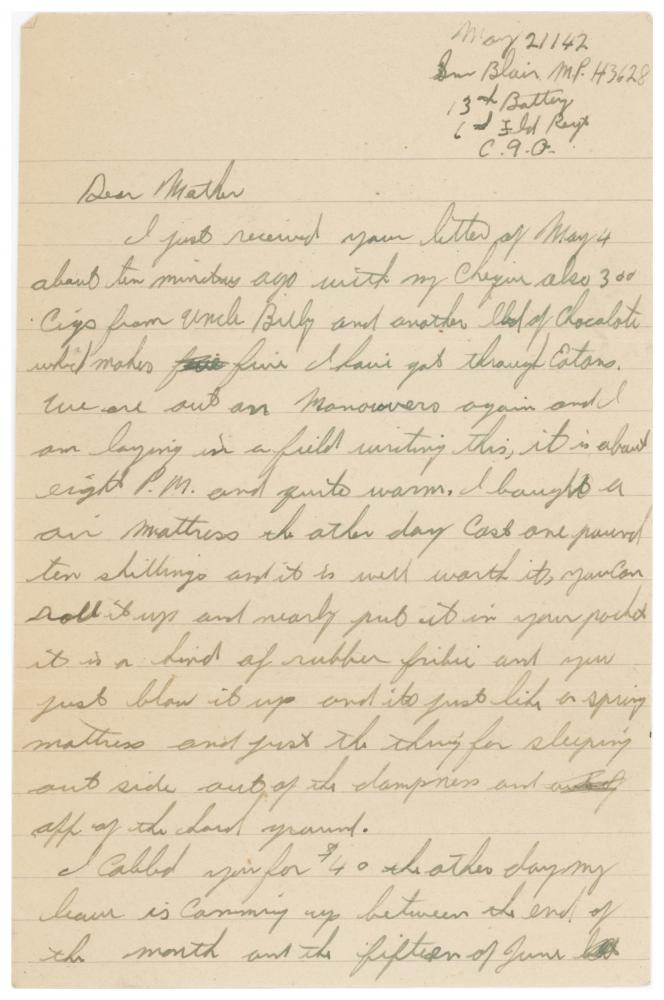 May 21/42
Gnr Blair M.P. H3628
13th Battery
6th Fld Regt
C.A.O.
Dear Mother
I just received your letter of May 4
about ten minitus ago with my Cheque also 300
Cigs from Uncle Billy and another lbd of Chocolate
which makes five I have got through Eatons.
We are out on Manouvers again and I
am laying in a field writing this, it is about
eight P.M. and quite warm. I bought a
air mattress the other day Cost one pound
ten shillings and it is well worth it, you Can
roll it up and nearly put it in your pocket
it is a kind of rubber and you
just blow it up and its just like a spring
mattress and just the thing for sleeping
out side out of the dampness and out of
off of the hard ground.
I Cabled you for $40 the other day my
leave is Comming up between the end of
the month and the fifteen of June